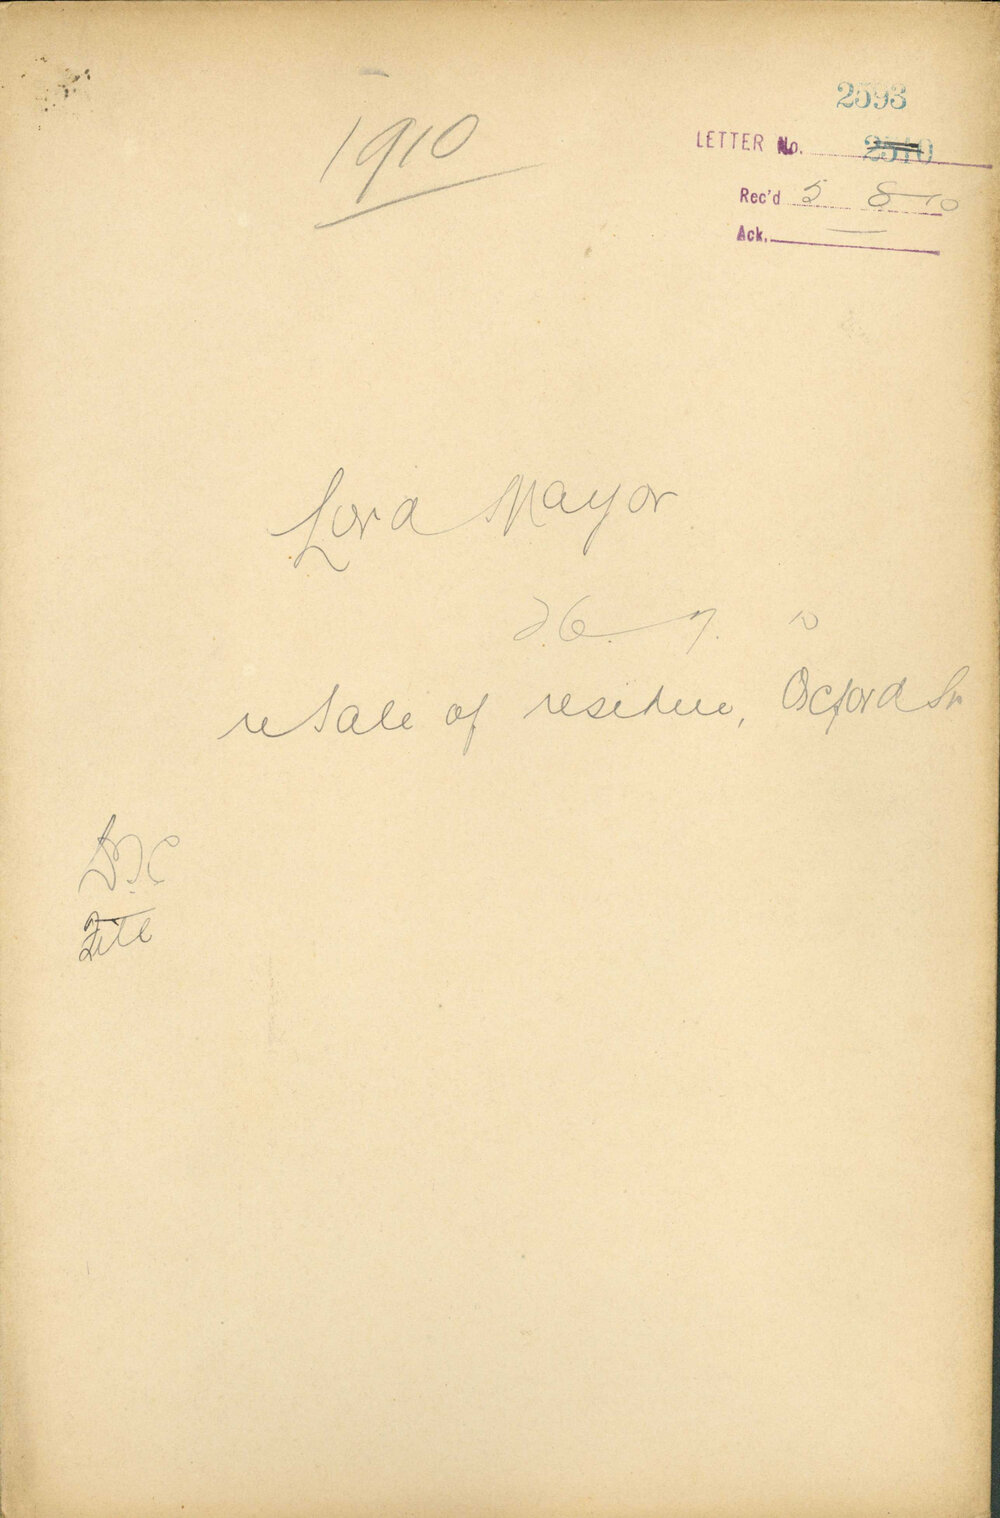 1910
2593
LETTER No. 2510
Rec'd 5 8 10
Ack.
Lord Mayor
26. 7. 10
re Sale of residue, Oxford St